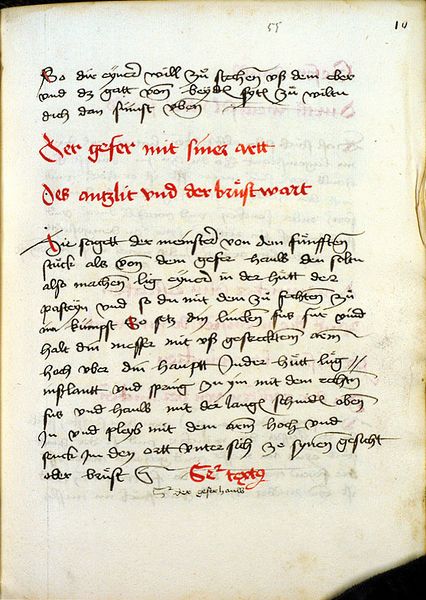 55
10
So dir eyner will zů stechen vß dem eber
vnd dz gatt von beyden sytt zů wiltu
dich dan sunst vben
Der gefer mit siner artt
Des antzlit vnd der brůst wart
Hie sagett der meinster von dem fünfften
stück als von dem gefer haulb den soltu
also machen lig eyner in der hůtt der
pasteyn vnd so du mit dem zů fechten zů
im kümpst So setz din lincken fuß für vnd
halt din messer mit vß gestrecktem arem
hoch vber din hauptt In der hůtt lůg
inslautt vnd spring zu ym mit dem rechten
fuß vnd haulb mit der lange schnidt oben
In vnd pleyb mit dem arem hoch vnd
senck Im den ortt vnter sich ze synem gesicht
oder brůst
der gefer haulb